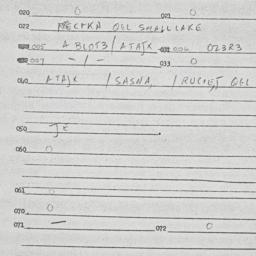 020 0 021 0
022 QGL SMALL LAKE
005 A BLOT3 / ATAJX 006 023R3
007 - / - 033 0
040 ATAJX / SASNA, / RUCHEJ, QGL
050 JE
060 0
061 0
070 0
071 — 072 0